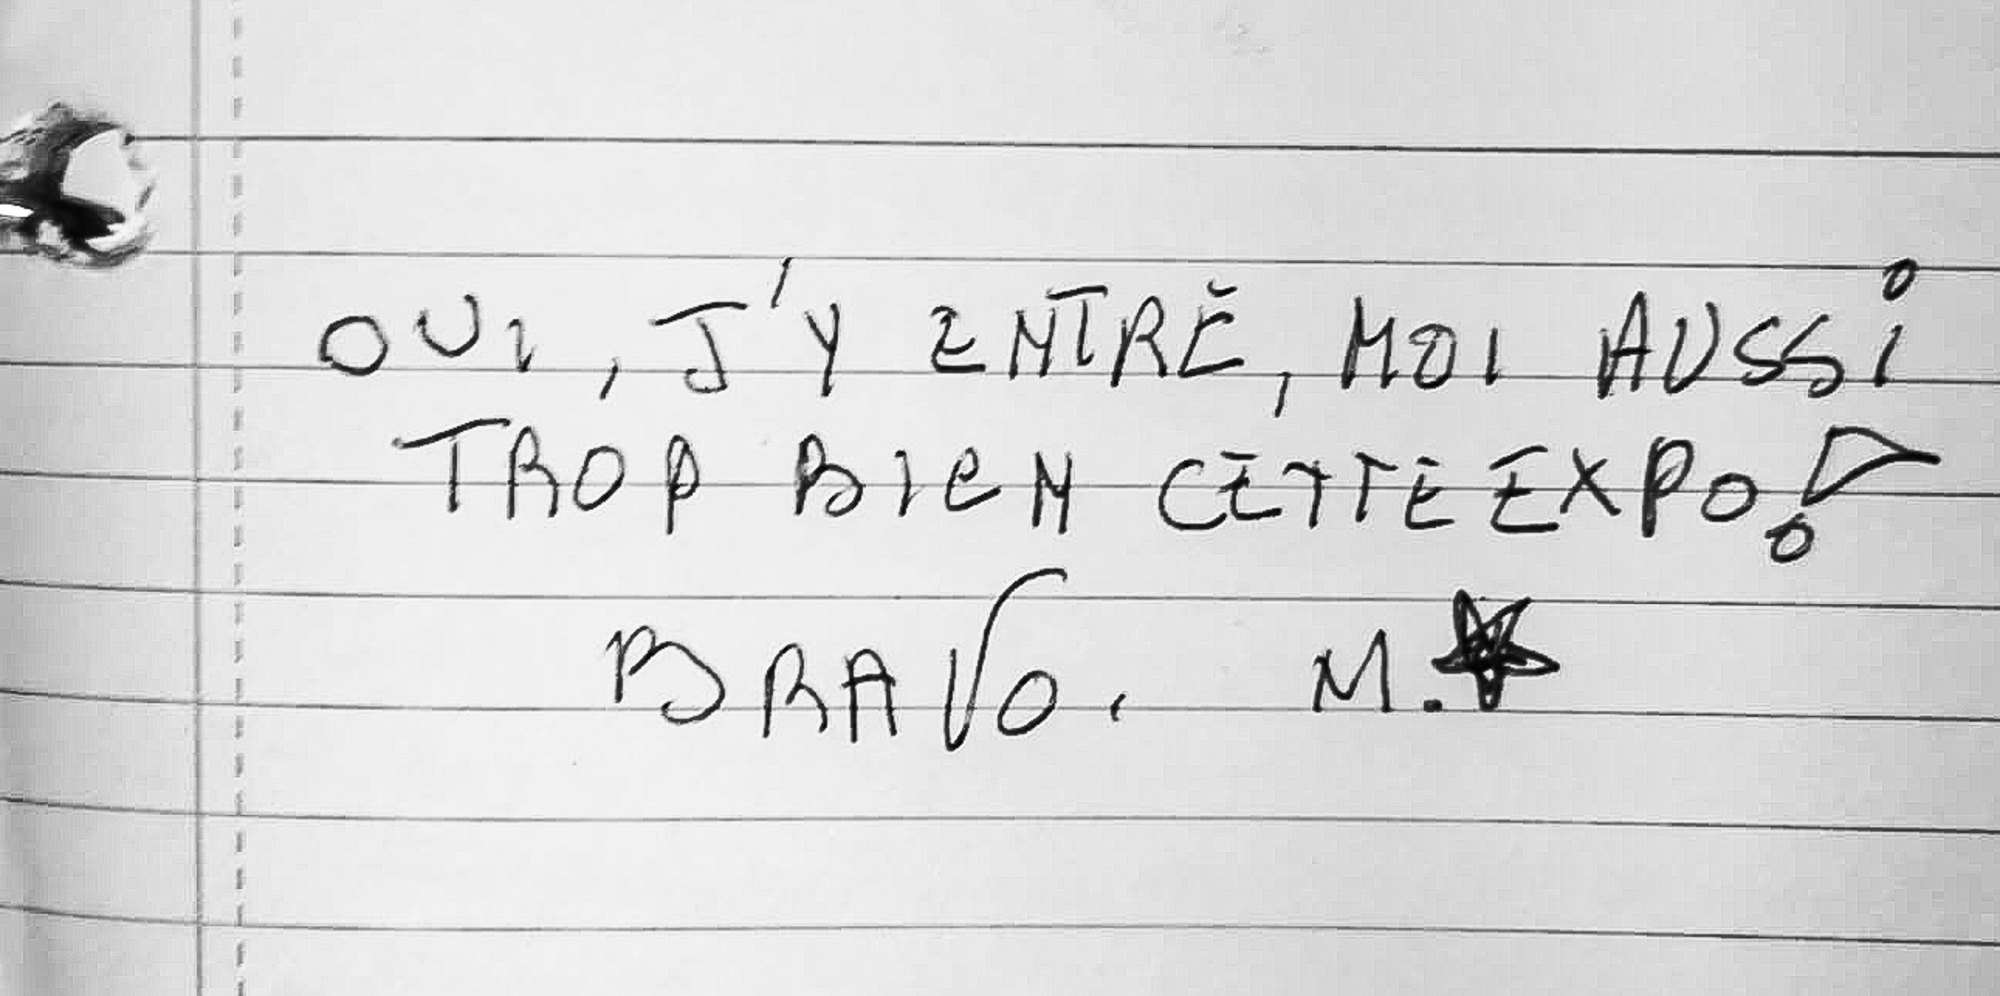 OUI, J'Y ENTRE, MOI AUSSI
TROP BIEN CETTE EXPO!
BRAVO. M.